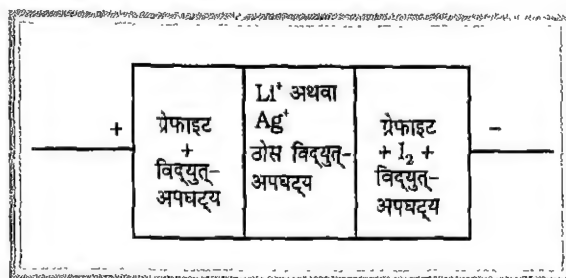 +
ग्रेफाइट
+
विद्युत्-
अपघट्य
Li⁺ अथवा
Ag⁺
ठोस विद्युत्-
अपघट्य
ग्रेफाइट
+ I₂ +
विद्युत्-
अपघट्य
−